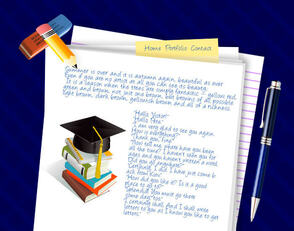 Home Portfolio Contact
Summer is over and it is autumn again, beautiful as ever.
Even if you are no artist at all you can see its beauty.
It is a season when the trees are simple fantastic — yellow, red,
green and brown, not just one brown, but browns of all possible
light brown, dark brown, yellowish brown and all of a richness
"Hello, Victor!"
"Hello, Pete!"
I am very glad to see you again.
How is everything?"
"Thank you, fine."
"How tell me, where have you been
all the time? I haven't seen you for
ages and you haven't written a word.
Did you go anywhere?"
"Certainly, I did. I have just come b
ack from Kiev."
"How did you like it? Is it a good
place to go to?"
"Splendid! You must go there
some day too."
"I certainly shall. And I shall write
letters to you as I know you like to get
letters."